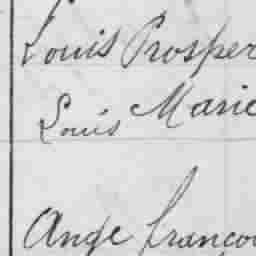 Louis Prosper
Louis Marie
Ange françoi